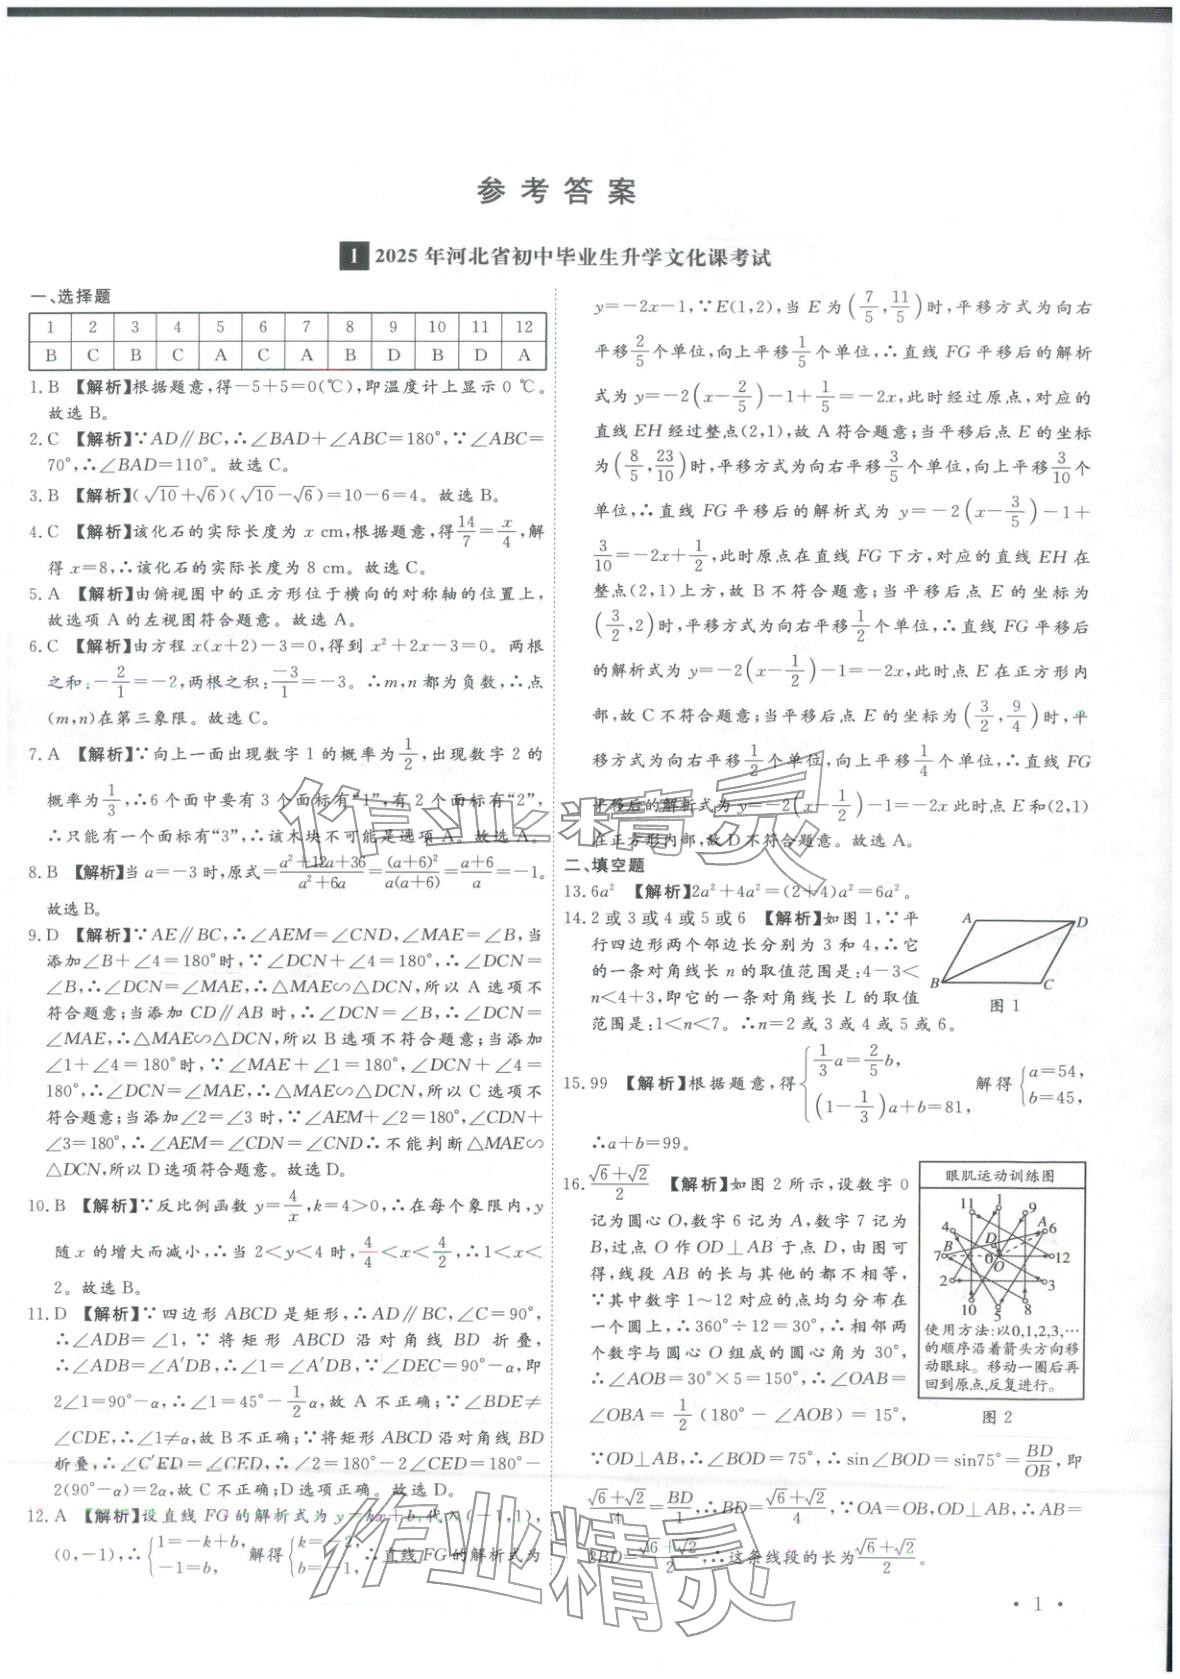 参考答案
1 2025年河北省初中毕业生升学文化课考试
一、选择题
1 2 3 4 5 6 7 8 9 10 11 12
B C B C A C A B D B D A
1.B 【解析】根据题意,得-5+5=0(℃),即温度计上显示0 ℃。
故选B。
2.C 【解析】∵AD∥BC,∴∠BAD+∠ABC=180°,∵∠ABC=
70°,∴∠BAD=110°。故选C。
3.B 【解析】(√10+√6)(√10-√6)=10-6=4。故选B。
4.C 【解析】该化石的实际长度为x cm,根据题意,得14/7=x/4,解
得x=8,∴该化石的实际长度为8 cm。故选C。
5.A 【解析】由俯视图中的正方形位于横向的对称轴的位置上,
故选项A的左视图符合题意。故选A。
6.C 【解析】由方程x(x+2)-3=0,得到x²+2x-3=0。两根
之和:-2/1=-2,两根之积:-3/1=-3。∴m,n都为负数,∴点
(m,n)在第三象限。故选C。
7.A 【解析】∵向上一面出现数字1的概率为1/2,出现数字2的
概率为1/3,∴6个面中要有3个面标有“1”,有2个面标有“2”,
∴只能有一个面标有“3”,∴该木块不可能是选项A。故选A。
8.B 【解析】当a=-3时,原式=(a²+12a+36)/(a²+6a)=(a+6)²/a(a+6)=(a+6)/a=-1。
故选B。
9.D 【解析】∵AE∥BC,∴∠AEM=∠CND,∠MAE=∠B,当
添加∠B+∠4=180°时,∵∠DCN+∠4=180°,∴∠DCN=
∠B,∴∠DCN=∠MAE,∴△MAE∽△DCN,所以A选项不
符合题意;当添加CD∥AB时,∴∠DCN=∠B,∴∠DCN=
∠MAE,∴△MAE∽△DCN,所以B选项不符合题意;当添加
∠1+∠4=180°时,∵∠MAE+∠1=180°,∠DCN+∠4=
180°,∴∠DCN=∠MAE,∴△MAE∽△DCN,所以C选项不
符合题意;当添加∠2=∠3时,∵∠AEM+∠2=180°,∠CDN+
∠3=180°,∴∠AEM=∠CDN=∠CND∴不能判断△MAE∽
△DCN,所以D选项符合题意。故选D。
10.B 【解析】∵反比例函数y=4/x,k=4>0,∴在每个象限内,y
随x的增大而减小,∴当2<y<4时,4/4<x<4/2,∴1<x<
2。故选B。
11.D 【解析】∵四边形ABCD是矩形,∴AD∥BC,∠C=90°,
∴∠ADB=∠1,∵将矩形ABCD沿对角线BD折叠,
∴∠ADB=∠A′DB,∴∠1=∠A′DB,∵∠DEC=90°-α,即
2∠1=90°-α,∴∠1=45°-1/2α,故A不正确;∵∠BDE≠
∠CDE,∴∠1≠α,故B不正确;∵将矩形ABCD沿对角线BD
折叠,∴∠C′ED=∠CED,∴∠2=180°-2∠CED=180°-
2(90°-α)=2α,故C不正确;D选项正确。故选D。
12.A 【解析】设直线FG的解析式为y=kx+b,代入(-1,1),
(0,-1),∴{1=-k+b, -1=b, 解得{k=-2, b=-1, ∴直线FG的解析式为
y=-2x-1,∵E(1,2),当E为(7/5,11/5)时,平移方式为向右
平移2/5个单位,向上平移1/5个单位,∴直线FG平移后的解析
式为y=-2(x-2/5)-1+1/5=-2x,此时经过原点,对应的
直线EH经过整点(2,1),故A符合题意;当平移后点E的坐标
为(8/5,23/10)时,平移方式为向右平移3/5个单位,向上平移3/10个
单位,∴直线FG平移后的解析式为y=-2(x-3/5)-1+
3/10=-2x+1/2,此时原点在直线FG下方,对应的直线EH在
整点(2,1)上方,故B不符合题意;当平移后点E的坐标为
(3/2,2)时,平移方式为向右平移1/2个单位,∴直线FG平移后
的解析式为y=-2(x-1/2)-1=-2x,此时点E在正方形内
部,故C不符合题意;当平移后点E的坐标为(3/2,9/4)时,平
移方式为向右平移1/2个单位,向上平移1/4个单位,∴直线FG
平移后的解析式为y=-2(x-1/2)-1=-2x此时点E和(2,1)
在正方形内部,故D不符合题意。故选A。
二、填空题
13.6a² 【解析】2a²+4a²=(2+4)a²=6a²。
14.2或3或4或5或6 【解析】如图1,∵平
行四边形两个邻边长分别为3和4,∴它
的一条对角线长n的取值范围是:4-3<
n<4+3,即它的一条对角线长L的取值
范围是:1<n<7。∴n=2或3或4或5或6。
A D B C
图1
15.99 【解析】根据题意,得{1/3a=2/5b, (1-1/3)a+b=81, 解得{a=54, b=45,
∴a+b=99。
16.(√6+√2)/2 【解析】如图2所示,设数字0
记为圆心O,数字6记为A,数字7记为
B,过点O作OD⊥AB于点D,由图可
得,线段AB的长与其他的都不相等,
∵其中数字1~12对应的点均匀分布在
一个圆上,∴360°÷12=30°,∴相邻两
个数字与圆心O组成的圆心角为30°,
∴∠AOB=30°×5=150°,∴∠OAB=
∠OBA=1/2(180°-∠AOB)=15°,
眼肌运动训练图
11 1 9 4 A 6 D B 7 0 O 12 2 3 10 5 8
使用方法:以0,1,2,3,…
的顺序沿着箭头方向移
动眼球。移动一圈后再
回到原点,反复进行。
图2
∵OD⊥AB,∴∠BOD=75°,∴sin∠BOD=sin75°=BD/OB,即
(√6+√2)/4=BD/1,∴BD=(√6+√2)/4,∵OA=OB,OD⊥AB,∴AB=
2BD=(√6+√2)/2,∴这条线段的长为(√6+√2)/2。
作业精灵
作业精灵
• 1 •